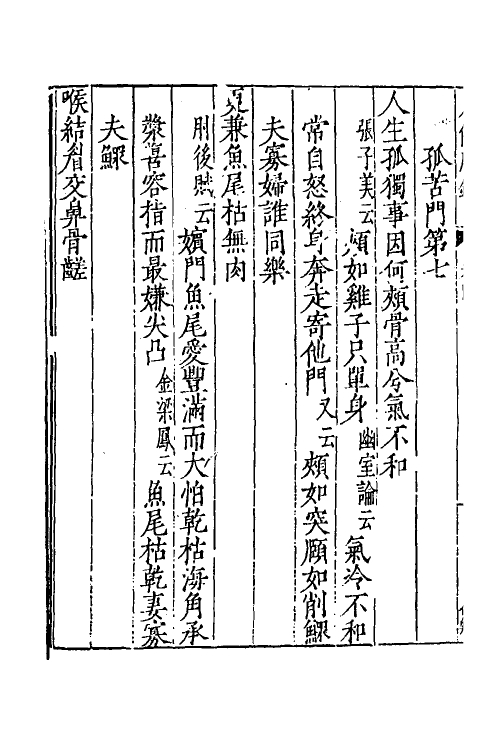 孤苦門第七
人生孤獨事因何頰骨高兮氣不和
張子美云頰如雞子只單身幽室論云氣冷不和
常自怒終身奔走寄他門又云頰如突顋如削鰥
夫寡婦誰同樂
更兼魚尾枯無肉
肘後賊云嬪門魚尾愛豐滿而大怕乾枯海角承
漿喜容指而最嫌尖凸金梁鳳云魚尾枯乾妻寡
夫鰥
喉結眉交鼻骨齹